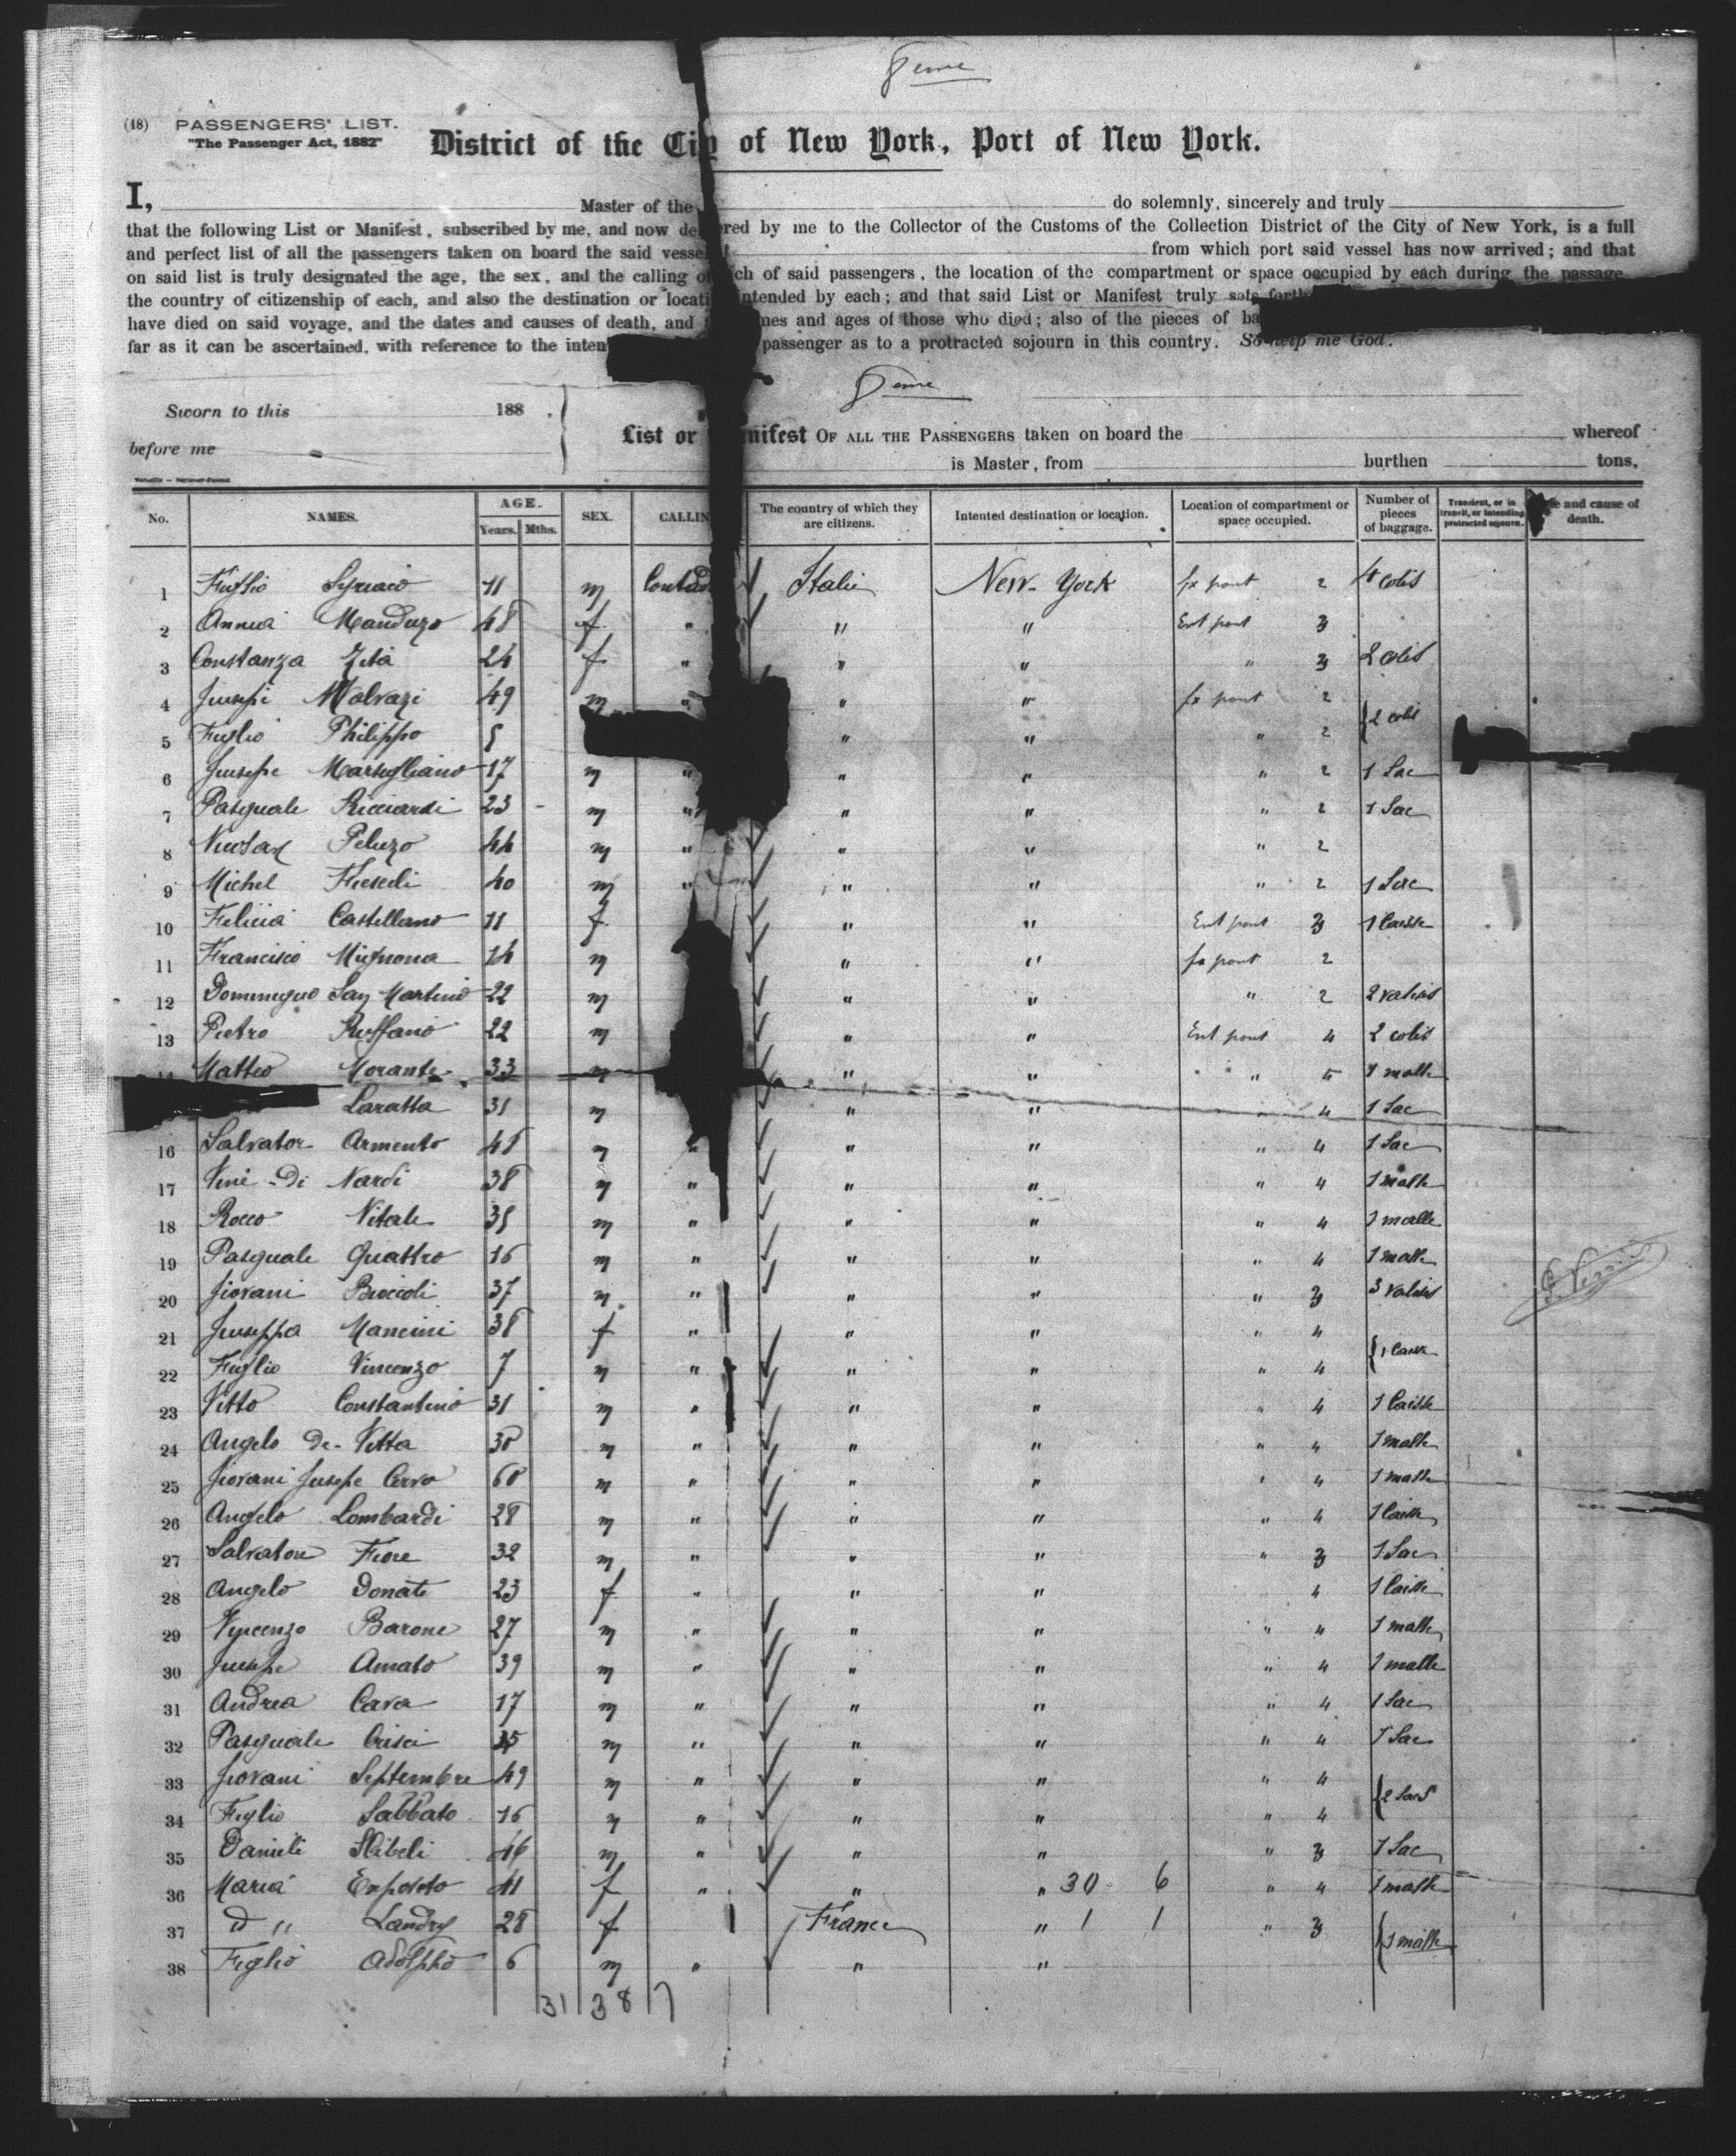 8eme
(18) PASSENGERS' LIST.
"The Passenger Act, 1882"
District of the City of New York, Port of New York.
I, Master of the do solemnly, sincerely and truly
that the following List or Manifest, subscribed by me, and now de ered by me to the Collector of the Customs of the Collection District of the City of New York, is a full
and perfect list of all the passengers taken on board the said vesse t from which port said vessel has now arrived; and that
on said list is truly designated the age, the sex, and the calling o ch of said passengers, the location of the compartment or space occupied by each during the passage
the country of citizenship of each, and also the destination or locati intended by each; and that said List or Manifest truly sets forth
have died on said voyage, and the dates and causes of death, and mes and ages of those who died; also of the pieces of ba
far as it can be ascertained, with reference to the inten passenger as to a protracted sojourn in this country. So help me God.
8eme
Sworn to this 188 .
before me
List or Manifest OF ALL THE PASSENGERS taken on board the whereof
is Master, from burthen tons.
No. NAMES. AGE. Years. Mths. SEX. CALLIN The country of which they are citizens. Intented destination or location. Location of compartment or space occupied. Number of pieces of baggage. Transient, or in transit, or intending protracted sojourn. e and cause of death.
1 Figlio 11 m Italie New-York fx pont 2 4 colis
2 Annia Manduzo 48 f " " " Ent pont 3
3 Constanza Zita 24 f " " " " 3 2 colis
4 Jiusepi Malvazi 49 m " " " fx pont 2 { 2 colis
5 Figlio Philippo 5 " " " 2
6 Jiusepe Marsigliano 17 m " " " " 2 1 Sac
7 Pasquale Ricciardi 23 - m " " " " 2 1 Sac
8 Peluzo 44 m " " " " 2
9 Michel 40 m " " " " 2 1 Sac
10 Felicia Castellano 11 f " " Ent pont 3 1 Caisse
11 Francisco Mignona 14 m " " fx pont 2
12 Dominiquo San Martino 22 m " " " 2 2 valises
13 Pietro Ruffano 22 m " " Ent pont 4 2 colis
14 Matteo Morante 33 m " " " 5 1 malle
Laratta 31 m " " " 4 1 Sac
16 Salvator Armento 48 m " " " " 4 1 Sac
17 Di Nardi 38 m " " " " 4 1 malle
18 Rocco Vitale 35 m " " " " 4 1 malle
19 Pasquale Quattro 16 m " " " " 4 1 malle
20 Jiovani Broccoli 37 m " " " " 3 3 valises
21 Jiuseppa Mancini 38 f " " " " 4 { 1 Caisse
22 Figlio Vincenzo 7 m " " " " 4
23 Vitto Constantino 31 m " " " " 4 1 Caisse
24 Angelo De-Vitta 30 m " " " " 4 1 malle
25 Jiovani Jusepe Cervo 60 m " " " " 4 1 malle
26 Angelo Lombardi 28 m " " " " 4 1 Caisse
27 Salvatore Fiore 32 m " " " " 3 1 Sac
28 Angelo Donati 23 f " " " 4 1 Caisse
29 Vincenzo Barone 27 m " " " " 4 1 malle
30 Jiusepe Amato 39 m " " " " 4 1 malle
31 Andrea Cava 17 m " " " " 4 1 Sac
32 Pasquale Crisci m " " " " 4 1 Sac
33 Jiovani Septembre 49 m " " " " 4 { 2 Sacs
34 Figlio Sabbato 16 m " " " " 4
35 Danieli 46 m " " " " 3 1 Sac
36 Maria Exposito 41 f " " " 30 6 " 4 1 malle
37 d " Landry 28 f France " 1 1 " 3 { 1 malle
38 Figlio Adolpho 6 m " " "
31 38 7